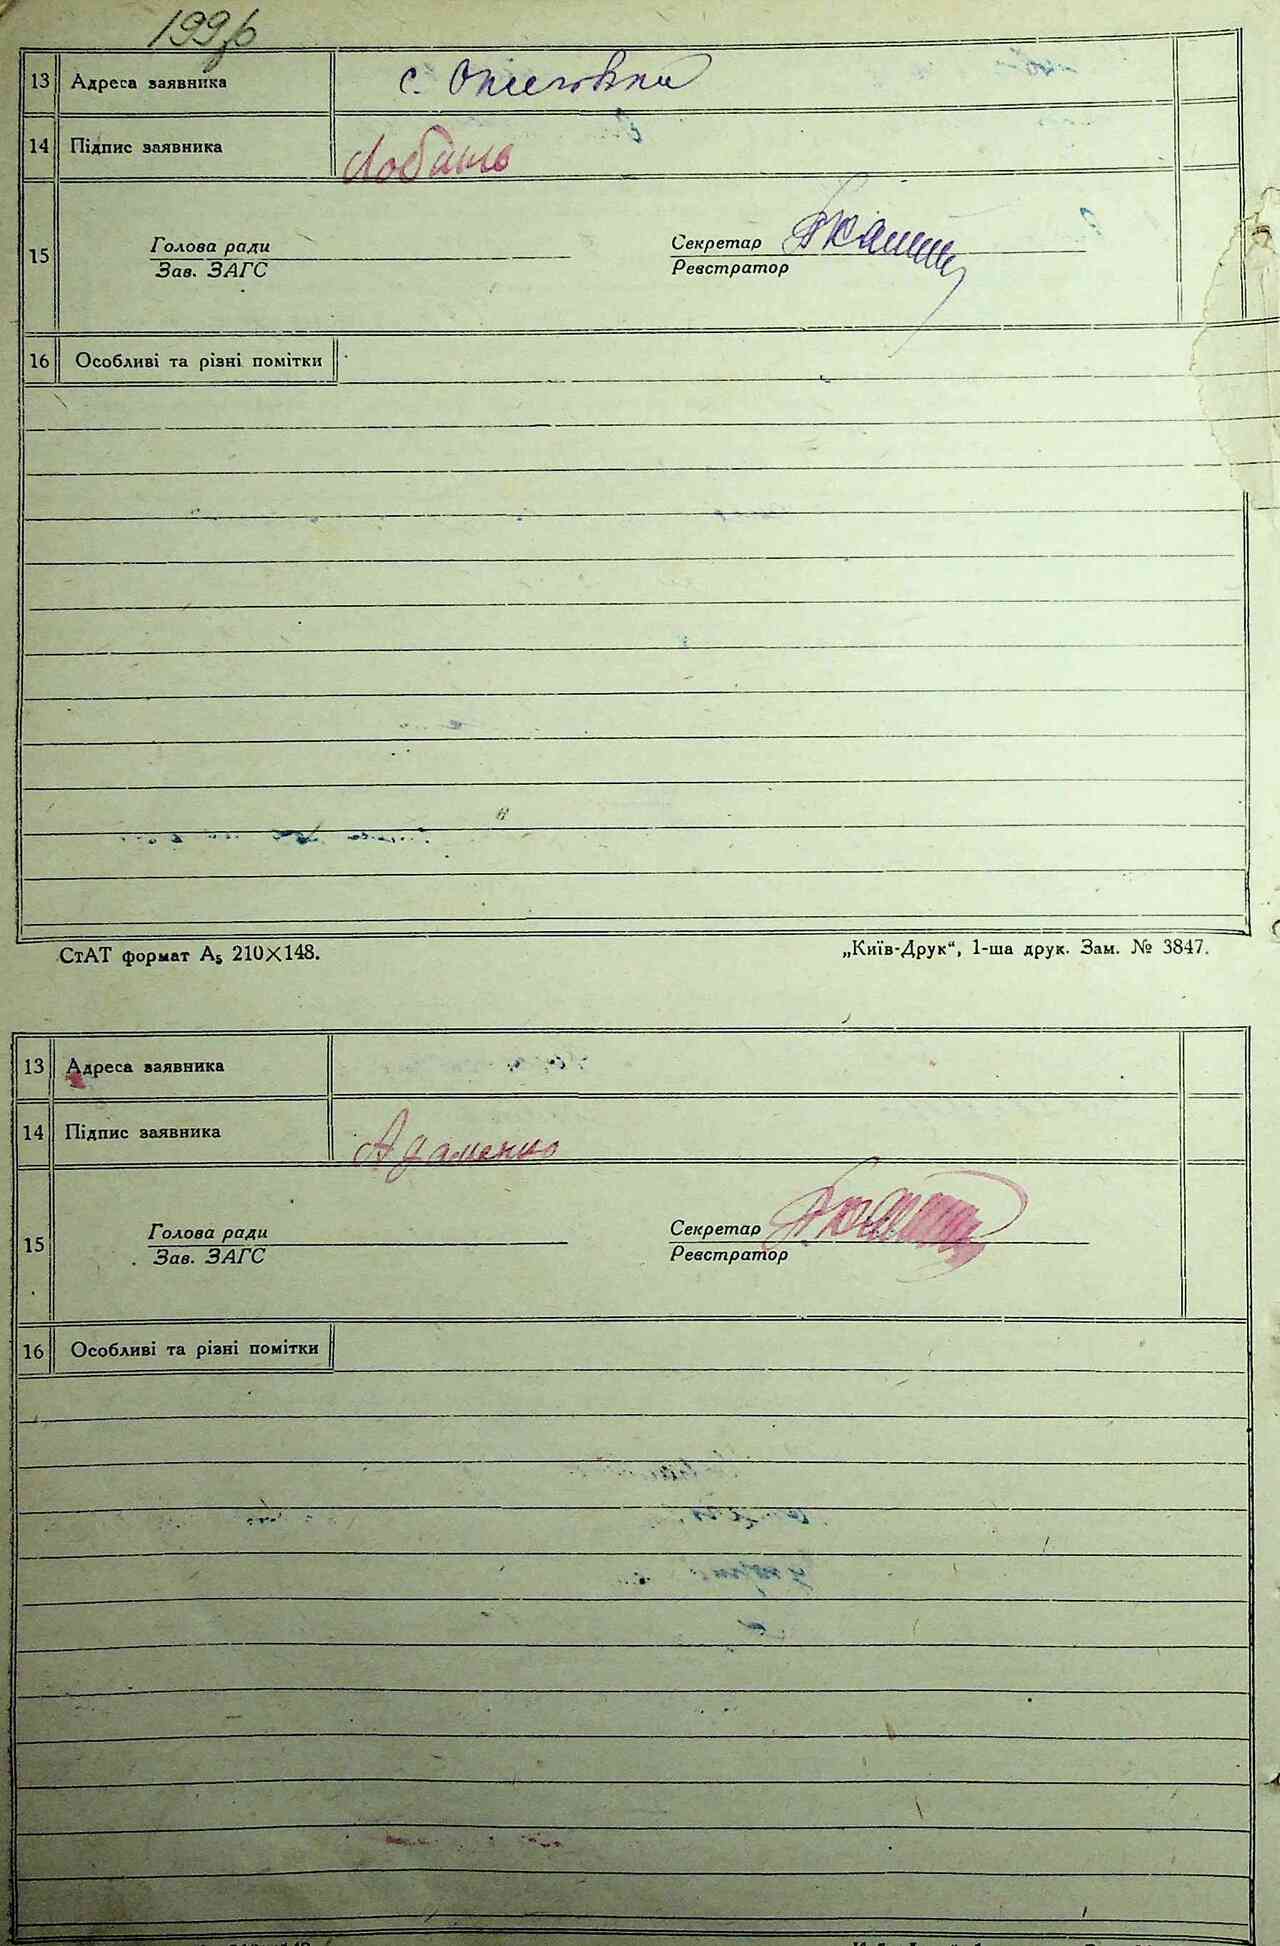 13 Адреса заявника с.
14 Підпис заявника
15 Голова ради Секретар
Зав. ЗАГС Реєстратор
16 Особливі та різні помітки
СтАТ формат А5 210×148. „Київ-Друк“, 1-ша друк. Зам. № 3847.
13 Адреса заявника
14 Підпис заявника Адаменко
15 Голова ради Секретар
Зав. ЗАГС Реєстратор
16 Особливі та різні помітки